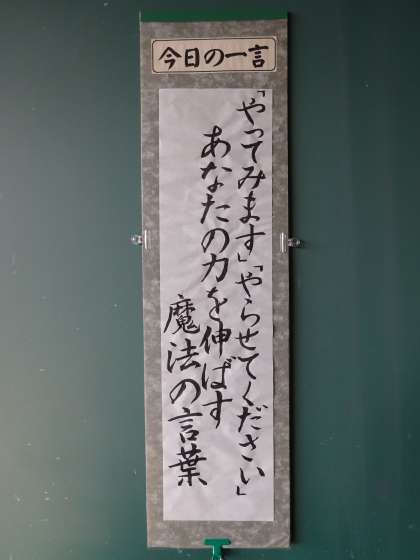 今日の一言
「やってみます」「やらせてください」
あなたの力を伸ばす
魔法の言葉